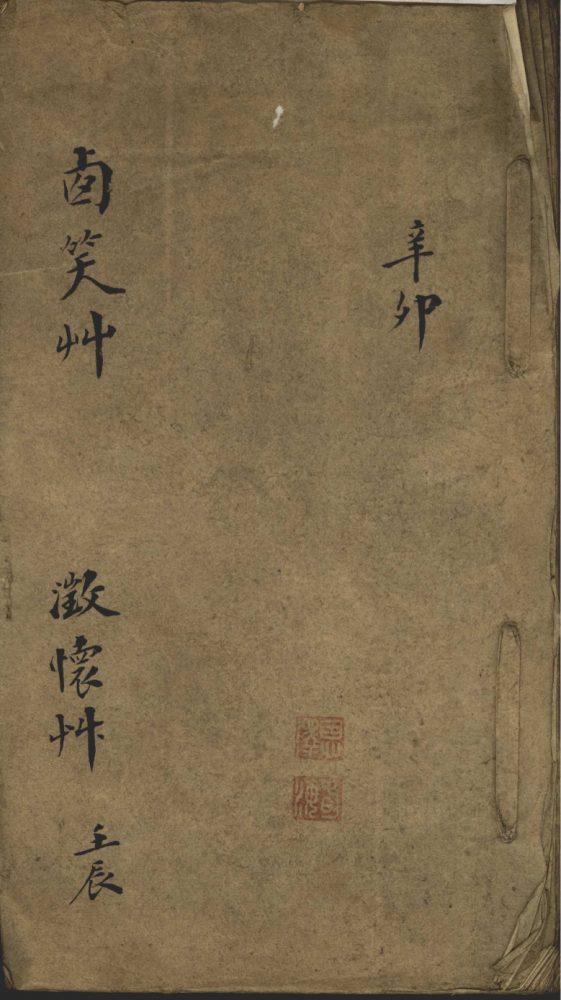 辛卯
卥笑艸
澂懷艸
壬辰